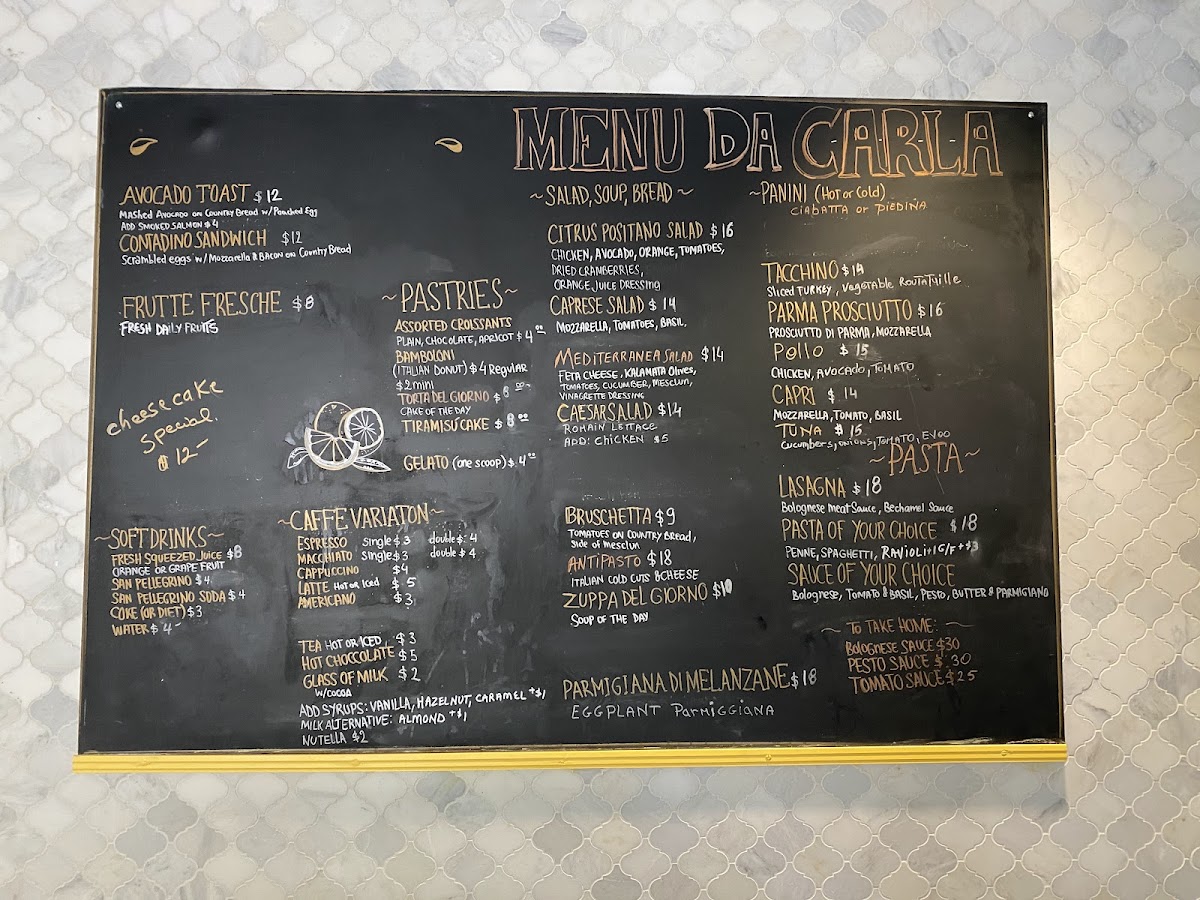 MENU DA CARLA
AVOCADO TOAST $12
MASHED AVOCADO ON COUNTRY BREAD W/ Poached Egg
ADD SMOKED SALMON $4
CONTADINO SANDWICH $12
Scrambled eggs w/ Mozzarella & BACON on Country Bread
FRUTTE FRESCHE $8
FRESH DAILY FRUITS
cheesecake
special
$12-
~SOFT DRINKS~
FRESH SQUEEZED JUICE $8
ORANGE OR GRAPE FRUIT
SAN PELLEGRINO $4
SAN PELLEGRINO SODA $4
COKE (OR DIET) $3
WATER $4-
~PASTRIES~
ASSORTED CROISSANTS
PLAIN, CHOCOLATE, APRICOT $4.00
BAMBOLONI
(ITALIAN DONUT) $4 Regular
$2 mini
TORTA DEL GIORNO $8.00
CAKE OF THE DAY
TIRAMISU CAKE $8.00
GELATO (one scoop) $4.00
~CAFFE VARIATON~
ESPRESSO single $3 double $4
MACCHIATO single $3 double $4
CAPPUCCINO $4
LATTE HOT OR Iced $5
AMERICANO $3
TEA HOT OR ICED $3
HOT CHOCCOLATE $5
GLASS OF MILK $2
W/COCOA
ADD SYRUPS: VANILLA, HAZELNUT, CARAMEL +$1
MILK ALTERNATIVE: ALMOND +$1
NUTELLA $2
~SALAD, SOUP, BREAD~
CITRUS POSITANO SALAD $16
CHICKEN, AVOCADO, ORANGE, TOMATOES,
DRIED CRANBERRIES,
ORANGE JUICE DRESSING
CAPRESE SALAD $14
MOZZARELLA, TOMATOES, BASIL.
MEDITERRANEA SALAD $14
FETA CHEESE, KALAMATA Olives,
TOMATOES, CUCUMBER, MESCLUN,
VINAGRETTE DRESSING
CAESAR SALAD $14
ROMAIN LETTACE
ADD: CHICKEN $5
BRUSCHETTA $9
TOMATOES ON COUNTRY BREAD,
side of mesclun
ANTIPASTO $18
ITALIAN COLD CUTS & CHEESE
ZUPPA DEL GIORNO $10
SOUP OF THE DAY
PARMIGIANA DI MELANZANE $18
EGGPLANT PARMIGGIANA
~PANINI (Hot or Cold)
CIABATTA or PIEDIÑA
TACCHINO $14
Sliced TURKEY, Vegetable
PARMA PROSCIUTTO $16
PROSCIUTTO DI PARMA, MOZZARELLA
Pollo $15
CHICKEN, AVOCADO, TOMATO
CAPRI $14
MOZZARELLA, TOMATO, BASIL
TUNA $15
Cucumbers, onions, TOMATO, EVOO
~PASTA~
LASAGNA $18
Bolognese Meat Sauce, Bechamel Sauce
PASTA OF YOUR CHOICE $18
PENNE, SPAGHETTI, RAVIOLI+1G/F+$3
SAUCE OF YOUR CHOICE
Bolognese, TOMATO & BASIL, PESTO, BUTTER & PARMIGIANO
~ TO TAKE HOME: ~
BOLOGNESE SAUCE $30
PESTO SAUCE $30
TOMATO SAUCE $25